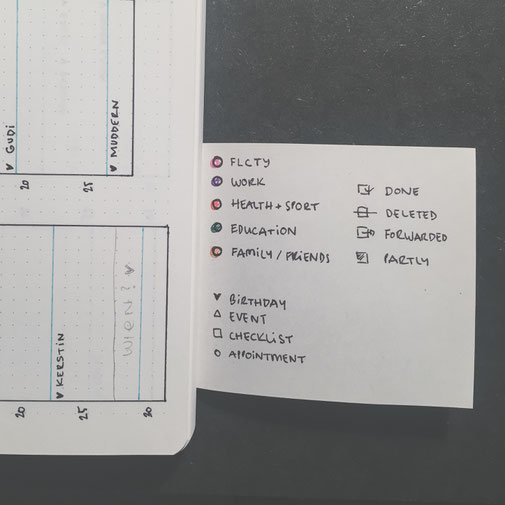 GUDI
MUDDERN
20
25
KERSTIN
WIEN?
20
25
30
FLCTY
WORK
HEALTH + SPORT
EDUCATION
FAMILY / FRIENDS
DONE
DELETED
FORWARDED
PARTLY
BIRTHDAY
EVENT
CHECKLIST
APPOINTMENT